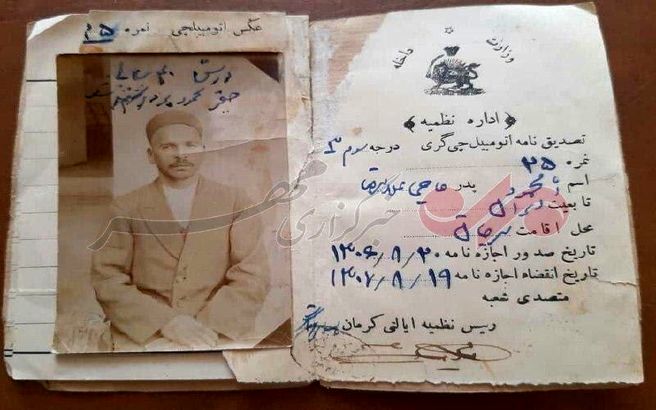 عکس اتومبیلچی نمره ۳۵
وزارت داخله
اداره نظمیه
تصدیق نامه اتومبیل چی گری درجه سوم ۳
نمره ۳۵
اسم محمود پدر حاجی
تابعیت ایران
محل اقامت سیرجان
تاریخ صدور اجازه نامه ۱۳۰۶/۸/۲۰
تاریخ انقضاء اجازه نامه ۱۳۰۷/۸/۱۹
متصدی شعبه
ریس نظمیه ایالتی کرمان
خبرگزاری مهر